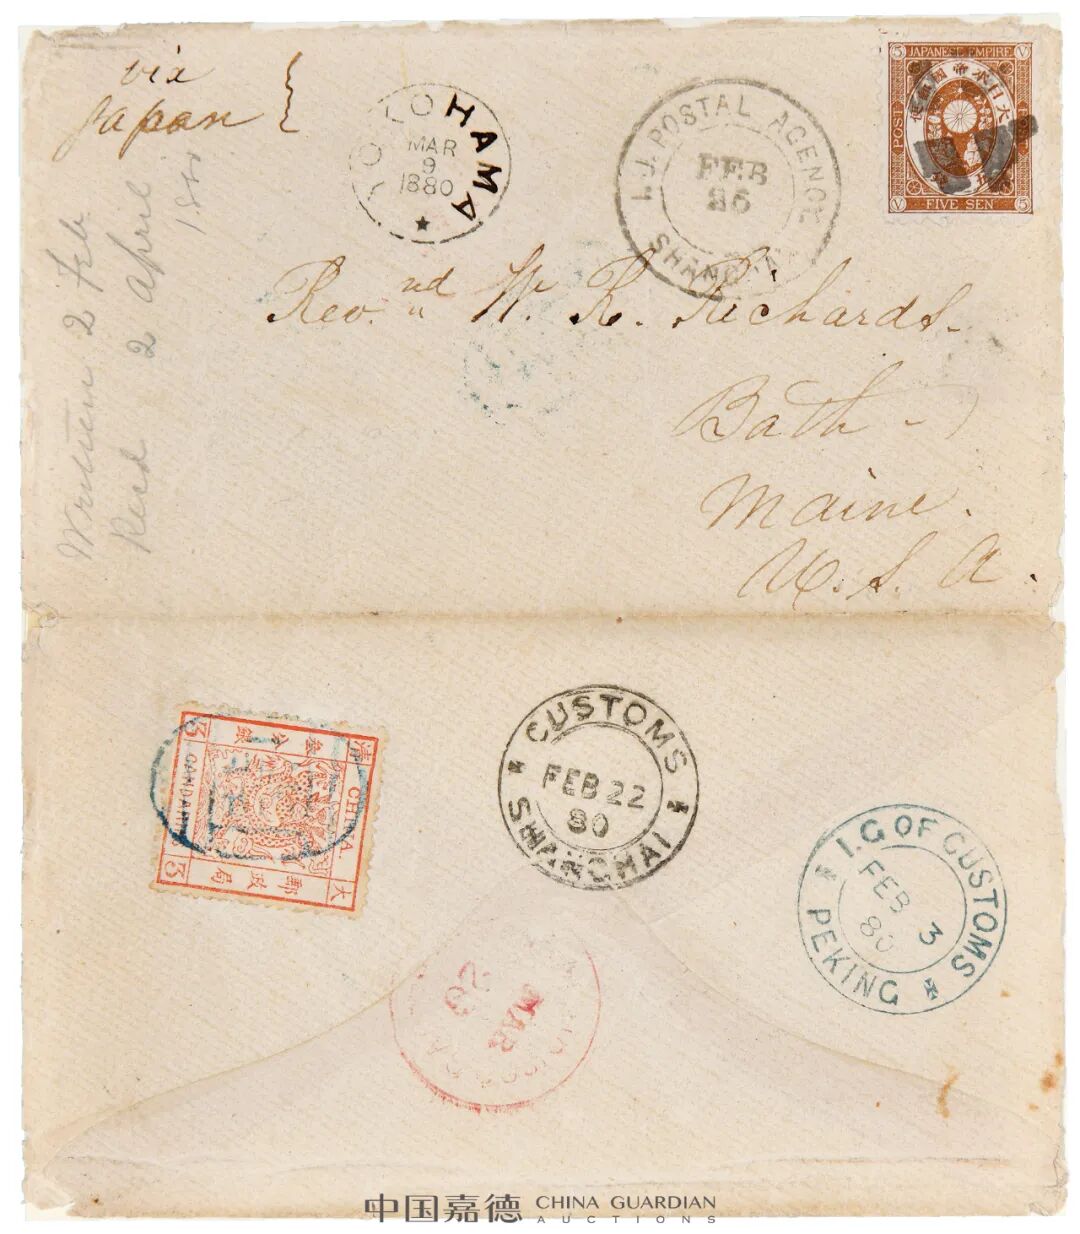 via
Japan
YOKOHAMA
MAR
9
1880
I.J. POSTAL AGENCE
FEB
SHANGHAI
5 JAPANESE EMPIRE V
大日本帝國郵便
POST
V FIVE SEN 5
Written 2 Feb
Recd 2 April
Revnd W. R. Richards.
Bath -
Maine.
U. S. A.
3
大清
CHINA.
郵政局
CANDARIN
3
CUSTOMS
FEB 22
80
SHANGHAI
I.G OF CUSTOMS
FEB 3
80
PEKING
MAR
中国嘉德 CHINA GUARDIAN
AUCTIONS